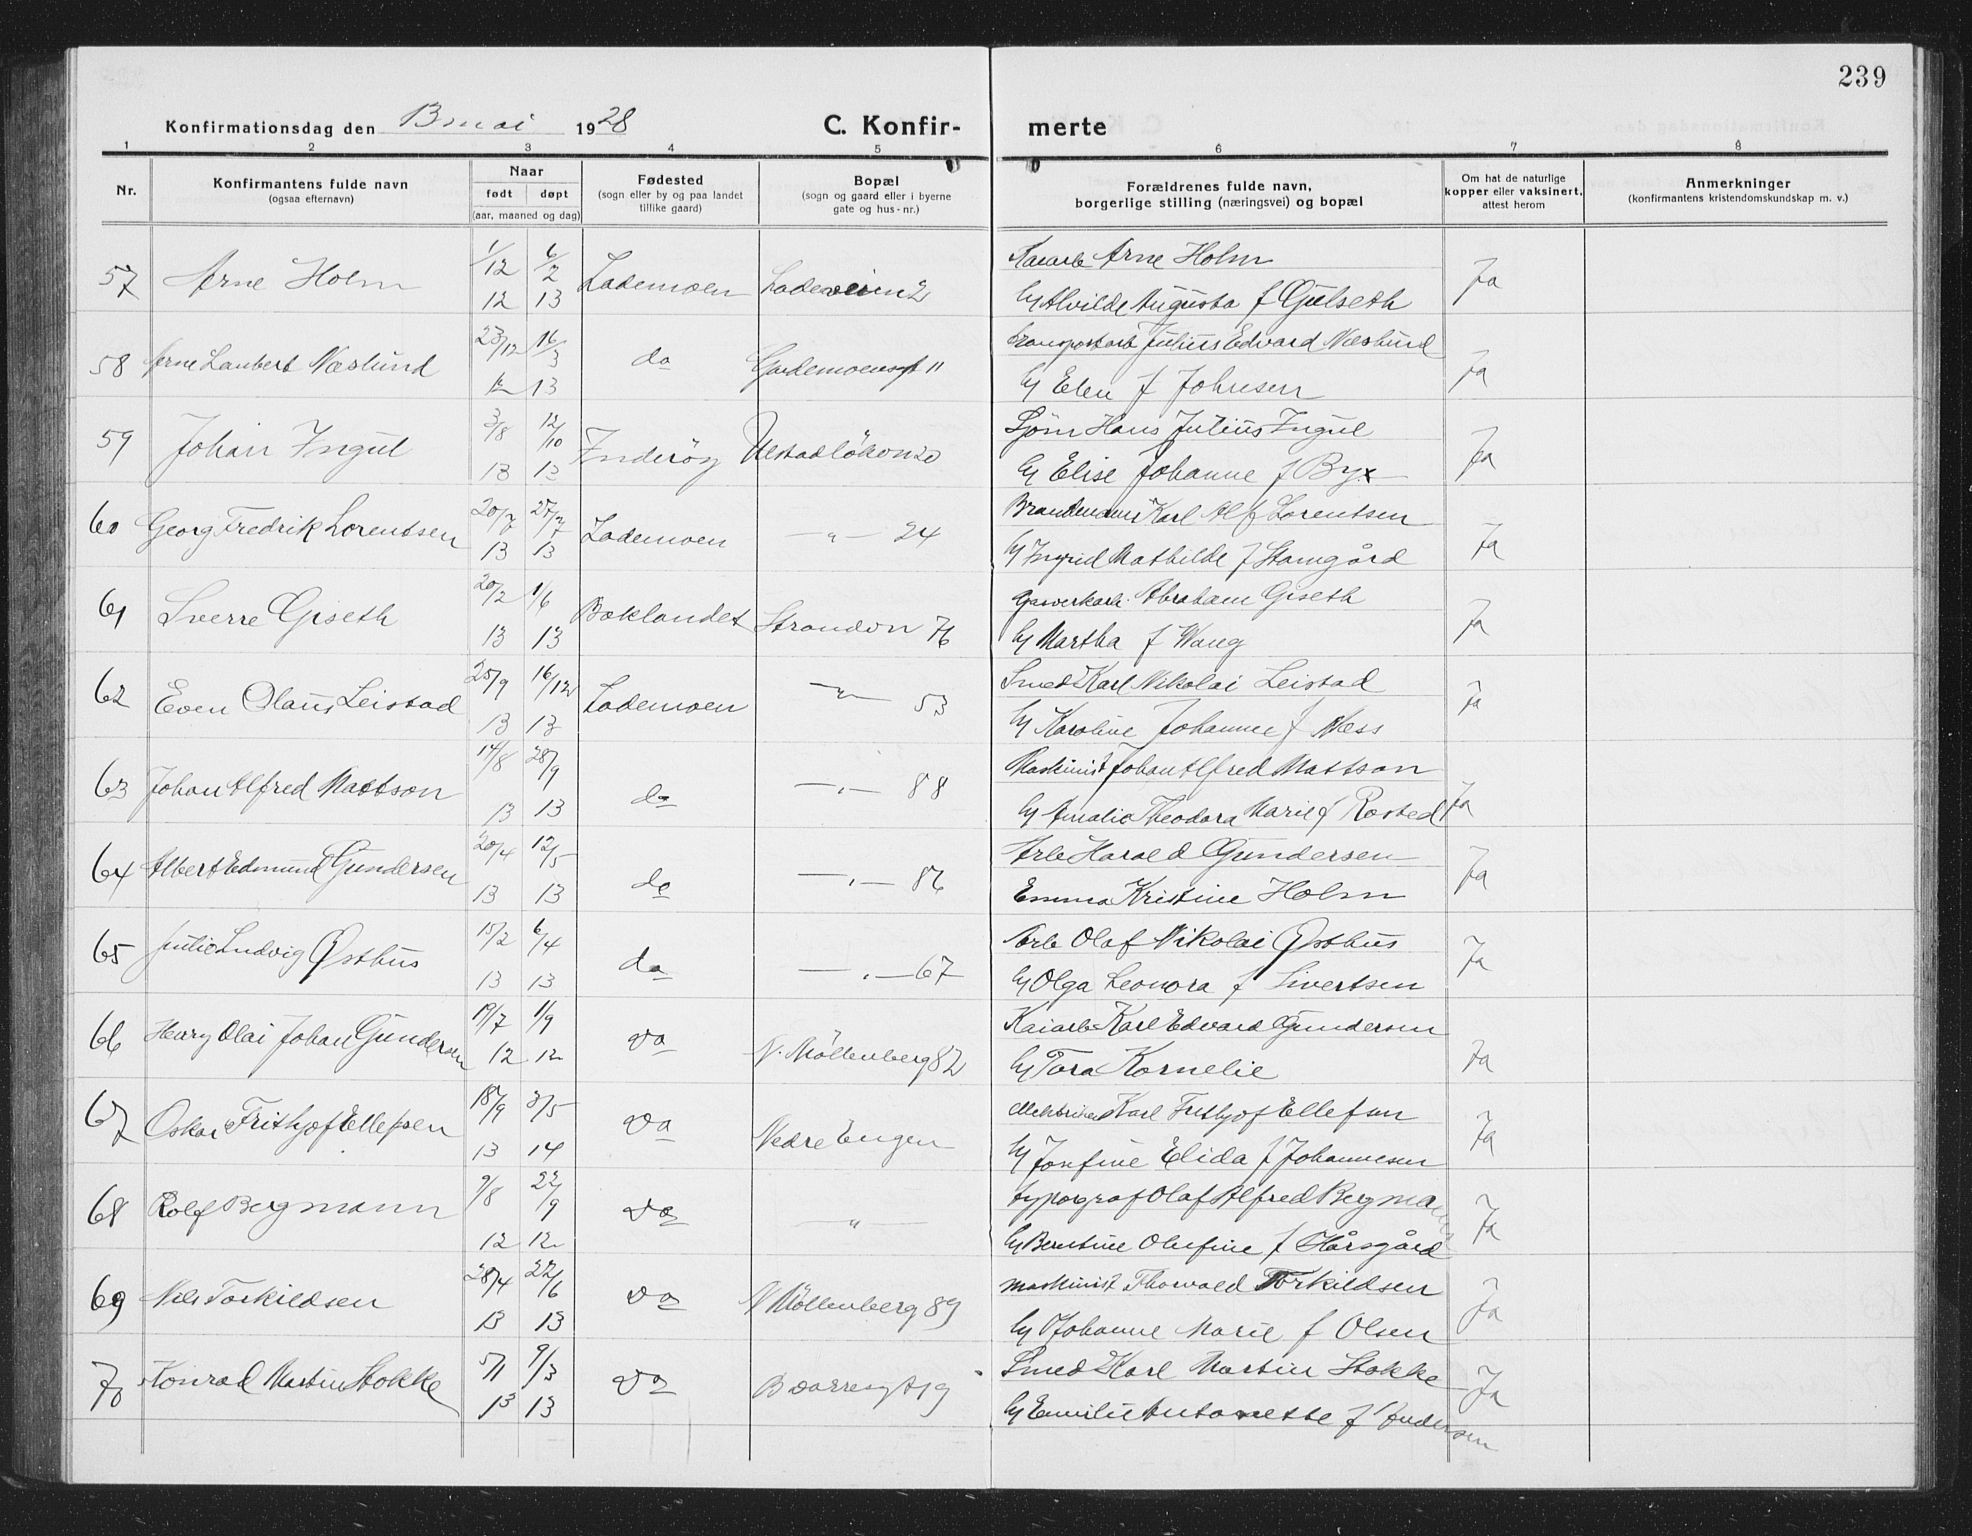 239
Konfirmationsdag den 13 mai 1928 C. Konfir- merte
1 2 3 4 5 6 7 8
Nr.
Konfirmantens fulde navn
(ogsaa efternavn)
Naar
født døpt
(aar, maaned og dag)
Fødested
(sogn eller by og paa landet
tillike gaard)
Bopæl
(sogn og gaard eller i byerne
gate og hus-nr.)
Forældrenes fulde navn,
borgerlige stilling (næringsvei) og bopæl
Om hat de naturlige
kopper eller vaksinert,
attest herom
Anmerkninger
(konfirmantens kristendomskundskap m. v.)
57 Arne Holm 1/12 12 6/2 13 Lademoen Ladeveien 2 Kaiarb Arne Holm Ja
Alvilde Augusta f Gulseth
58 Arne Laubert Næslund 23/12 12 16/3 13 do 11 Transportarb Julius Edvard Næslund Ja
Elen f Johnsen
59 Johan Ingul 3/8 13 12/10 13 Inderöy 20 Sjøm Hans Julius Ingul Ja
Elise Johanne f By
60 Georg Fredrik Lorentsen 20/7 13 27/7 13 Lademoen —"— 24 Brandmann Karl Alf Lorentsen Ja
Ingrid Mathilde f Stamgård
61 Sverre Giseth 20/2 13 1/6 13 Baklandet Strandvn 76 Gasverkarb. Abraham Giseth Ja
Martha f Wang
62 Even Olaus Leistad 25/9 13 16/12 13 Lademoen —"— 53 Smed Karl Nikolai Leistad Ja
Karoline Johanne f Næss
63 Johan Alfred Mattson 14/8 13 28/9 13 do —"— 88 Maskinist Johan Alfred Mattson Ja
Amalie Theodora Marie f Rosted
64 Albert Edmund Gundersen 20/4 13 12/5 13 do —"— 86 Arb Harald Gundersen Ja
Emma Kristine Holm
65 Ludvig Østhus 15/2 13 6/4 13 do —"— 67 Arb Olaf Nikolai Østhus Ja
Olga Leonora f Sivertsen
66 Henry Olai Johan Gundersen 19/7 12 1/9 12 do N. Möllenberg 82 Kaiarb Karl Edvard Gundersen Ja
Tora Kornelie
67 Oskar Frithjof Ellefsen 18/9 13 3/5 14 do Nedre Engen Karl Frithjof Ellefsen Ja
Josefine Elida f Johannesen
68 Rolf Bergmann 9/8 12 22/9 12 do —"— typograf Olaf Alfred Bergmann Ja
Berntine Olufine f Hårsgård
69 Nils Torkildsen 28/4 13 22/6 13 do N Möllenberg 89 maskinist Thorvald Torkildsen Ja
Johanne Marie f Olsen
70 Konrad Martin Stokke 5/1 13 9/3 13 do 19 Smed Karl Martin Stokke Ja
Emilie Antonette f Andersen